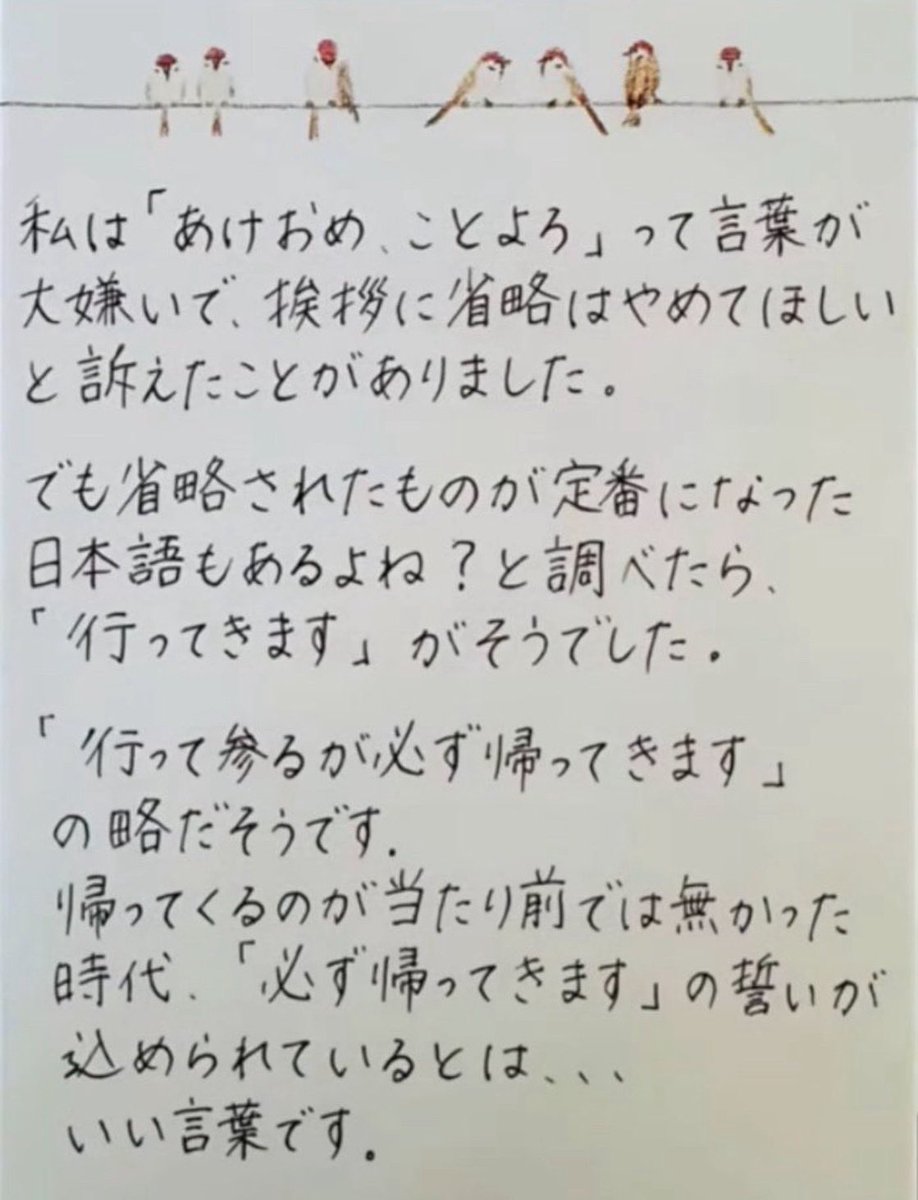 私は「あけおめ、ことよろ」って言葉が
大嫌いで、挨拶に省略はやめてほしい
と訴えたことがありました。
でも省略されたものが定番になった
日本語もあるよね？と調べたら、
「行ってきます」がそうでした。
「行って参るが必ず帰ってきます」
の略だそうです.
帰ってくるのが当たり前では無かった
時代、「必ず帰ってきます」の誓いが
込められているとは、、、
いい言葉です.